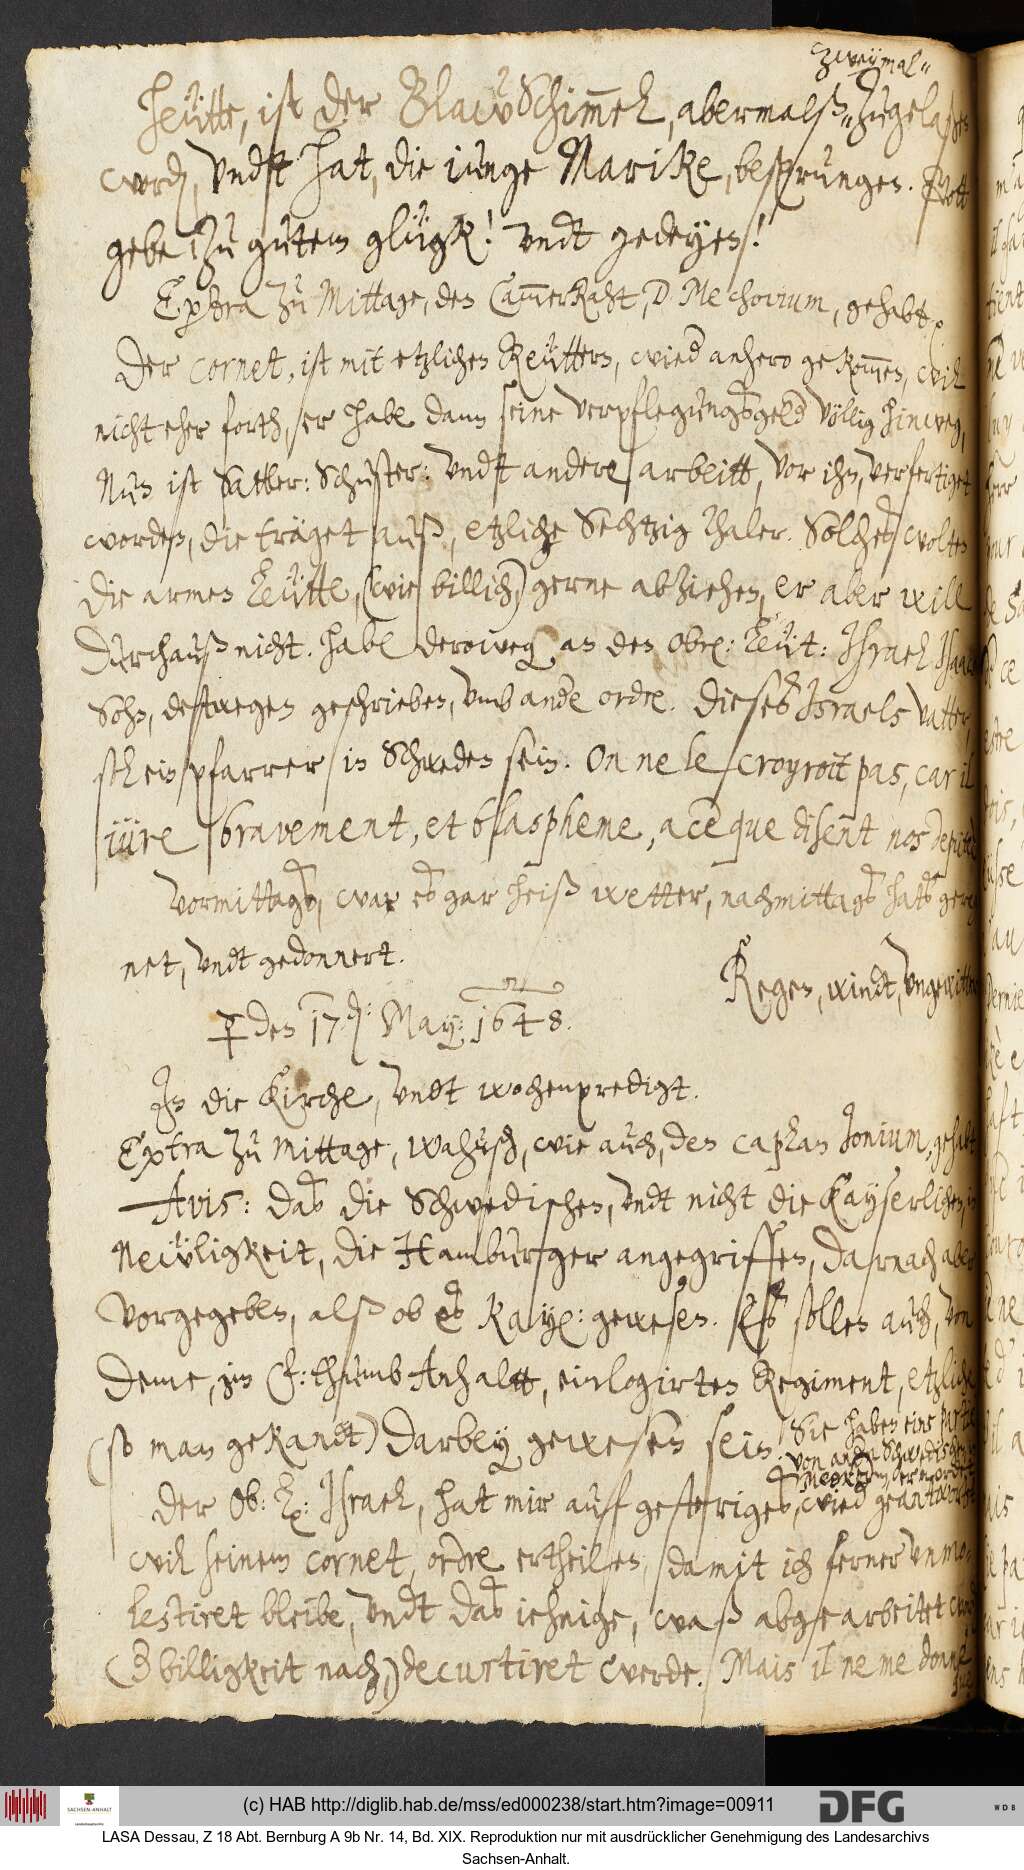 zweymal"
Heütte, ist der BlawSchim̅el, abermalß" zugelaßen
word, vndt hat, die iunge Marike, besprungen. Gott
gebe zu gutem glügk! vndt gedeyen!
Extra zu Mittage, den Cam̅erRaht, D. Mechovium, gehabt.
Der cornet, ist mit etzlichen Reüttern, wied anhero gekom̅en, wil
nicht eher forth, er habe dann seine verpflegungsgeld völlig hinweg,
Nun ist Sattler: Schuster: vndt andere arbeitt, vor ihn, verfertiget
worden, die träget auß, etzliche Sechtzig Thaler. Solches wolten
die armen Leütte, (wie billich,) gerne abziehen, er aber will
durchauß nicht. habe derowege an den Obr: Leüt: Israel Isaac
Sohn, deßwegen geschrieben, vmb ande ordre. Dieses Israels vatter,
sol ein pfarrer in Schweden sein. On ne le croyroit pas, car il
iüre bravement, et blaspheme, a ce que disent nos deputèz
Vormittags, war es gar heiß wetter, nachmittags hats gereg
net, vndt gedonnert.
Regen, windt, vngewitter
☿ den 17. d: May: 1648.
In die Kirche, vndt wochenpredigt.
Extra zu Mittage, wie auch, den caplan Jonium, gehabt
Avis: das die Schwedischen, vndt nicht die Kayserlichen, in
Neüligkeit, die Hamburger angegriffen, darnach aber
vorgegeben, alß ob es Kayl: gewesen. Es sollen auch, von
deme, im F: thumb Anhaltt, einlogirten Regiment, etzliche
(so man gekandt) darbey gewesen sein. Sie haben eine partie
von andn Schwedischen
der Ob: L: Israel, hat mir auf gestriges, wied geantwortet
wil seinem cornet, ordre ertheilen, damit ich ferner vnmo-
lestiret bleibe, vndt das iehnige, waß abgearbeitet word
(der billigkeit nach,) decurtiret werde. Mais il ne me donne
(c) HAB http://diglib.hab.de/mss/ed000238/start.htm?image=00911
SACHSEN-ANHALT
DFG
WDB
LASA Dessau, Z 18 Abt. Bernburg A 9b Nr. 14, Bd. XIX. Reproduktion nur mit ausdrücklicher Genehmigung des Landesarchivs
Sachsen-Anhalt.